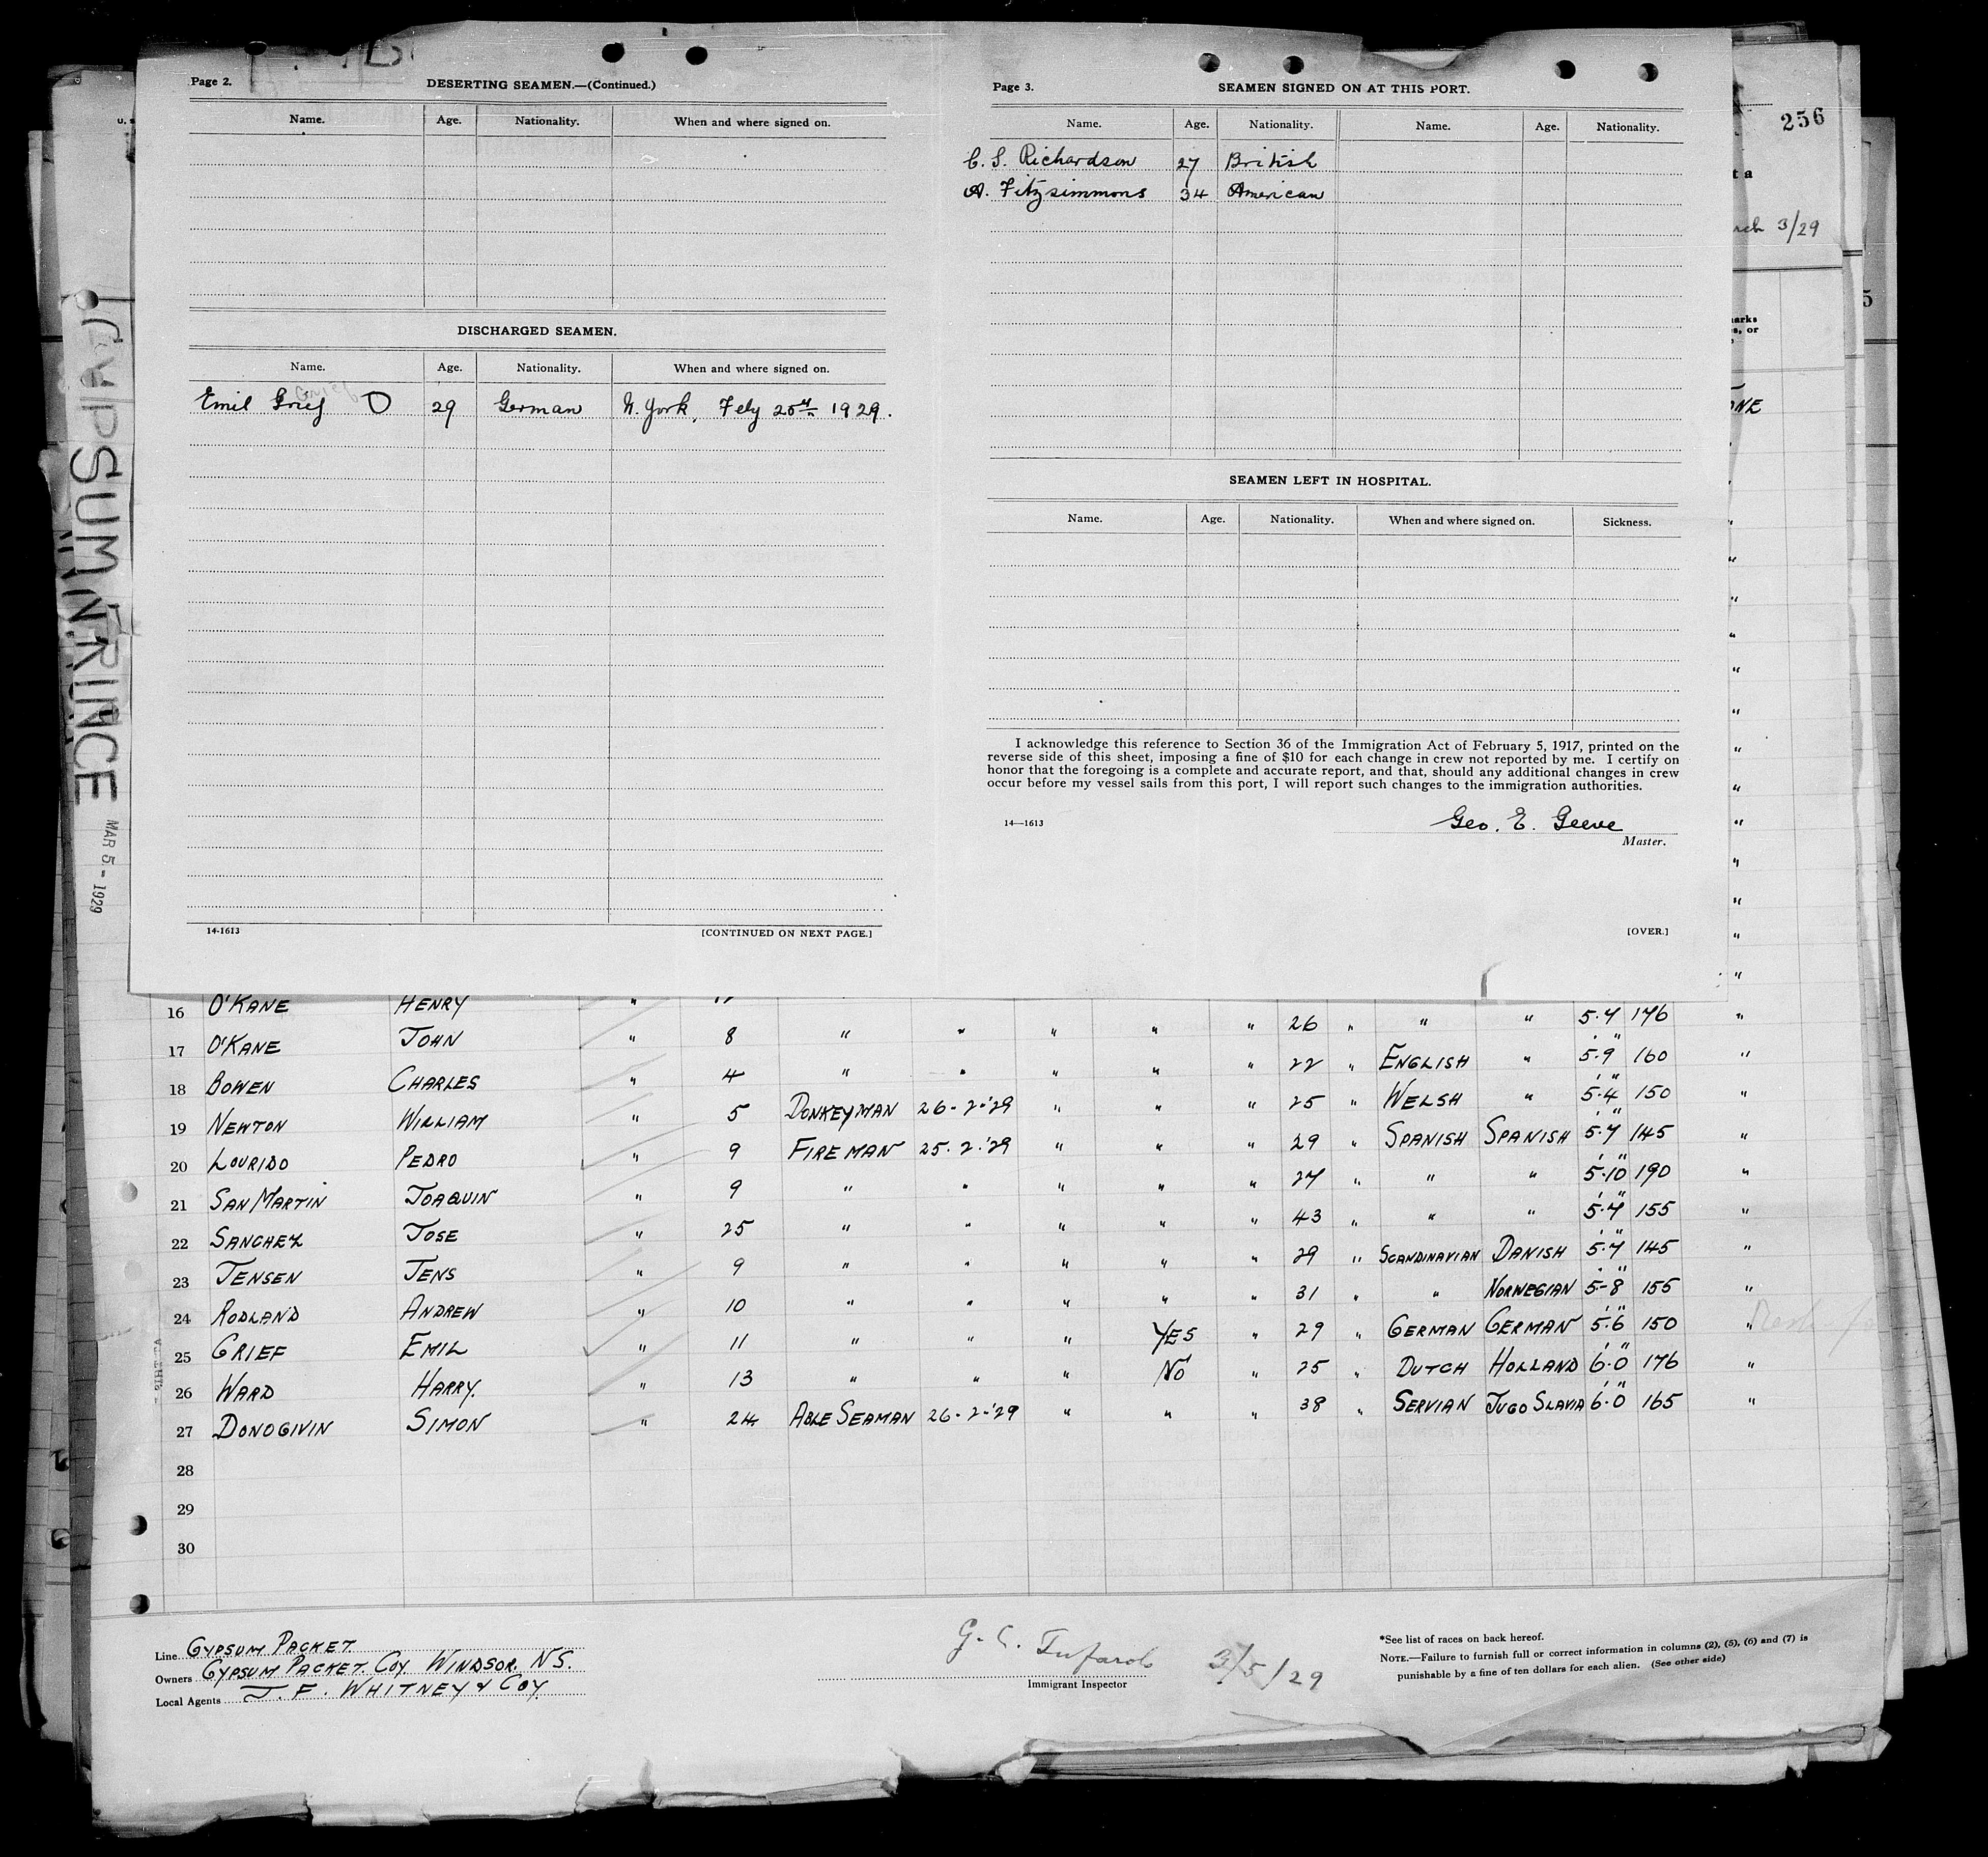 Page 2.
DESERTING SEAMEN.—(Continued.)
Name. Age. Nationality. When and where signed on.
DISCHARGED SEAMEN.
Name. Age. Nationality. When and where signed on.
Emil Grief D 29 German N. York, Feby 25th 1929.
14-1613 [CONTINUED ON NEXT PAGE.]
Page 3.
SEAMEN SIGNED ON AT THIS PORT.
Name. Age. Nationality. Name. Age. Nationality.
C. S. Richardson 27 British
A. Fitzsimmons 34 American
SEAMEN LEFT IN HOSPITAL.
Name. Age. Nationality. When and where signed on. Sickness.
I acknowledge this reference to Section 36 of the Immigration Act of February 5, 1917, printed on the
reverse side of this sheet, imposing a fine of $10 for each change in crew not reported by me. I certify on
honor that the foregoing is a complete and accurate report, and that, should any additional changes in crew
occur before my vessel sails from this port, I will report such changes to the immigration authorities.
14—1613
Geo. E. Geeve
Master.
[OVER.]
256
3/29
MAR 5 - 1929
16 O'KANE HENRY " 17
17 O'KANE JOHN " 8 " " " " " 26 " " " 5'.7" 176 "
18 BOWEN CHARLES " 4 " " " " " 22 " ENGLISH " 5'.9" 160 "
19 NEWTON WILLIAM " 5 DONKEYMAN 26-2-'29 " " " 25 " WELSH " 5'.4" 150 "
20 LOURIDO PEDRO " 9 FIREMAN 25.2.'29 " " " 29 " SPANISH SPANISH 5'.7" 145 "
21 SAN MARTIN JOAQUIN " 9 " " " " " 27 " " " 5'.10" 190 "
22 SANCHEZ JOSE " 25 " " " " " 43 " " " 5'.7" 155 "
23 JENSEN JENS " 9 " " " " " 29 " SCANDINAVIAN DANISH 5'.7" 145 "
24 RODLAND ANDREW " 10 " " " " " 31 " " NORWEGIAN 5'-8" 155 "
25 GRIEF EMIL " 11 " " " YES " 29 " GERMAN GERMAN 5'.6" 150 "
26 WARD HARRY. " 13 " " " NO " 25 " DUTCH HOLLAND 6'.0" 176 "
27 DONOGIVIN SIMON " 24 ABLE SEAMAN 26-2-'29 " " " 38 " SERVIAN JUGO SLAVIA 6'.0" 165 "
28
29
30
Line GYPSUM PACKET
Owners GYPSUM PACKET. COY. WINDSOR. N.S.
Local Agents J. F. WHITNEY & COY.
3/5/29
Immigrant Inspector
*See list of races on back hereof.
NOTE.—Failure to furnish full or correct information in columns (2), (5), (6) and (7) is
punishable by a fine of ten dollars for each alien. (See other side)